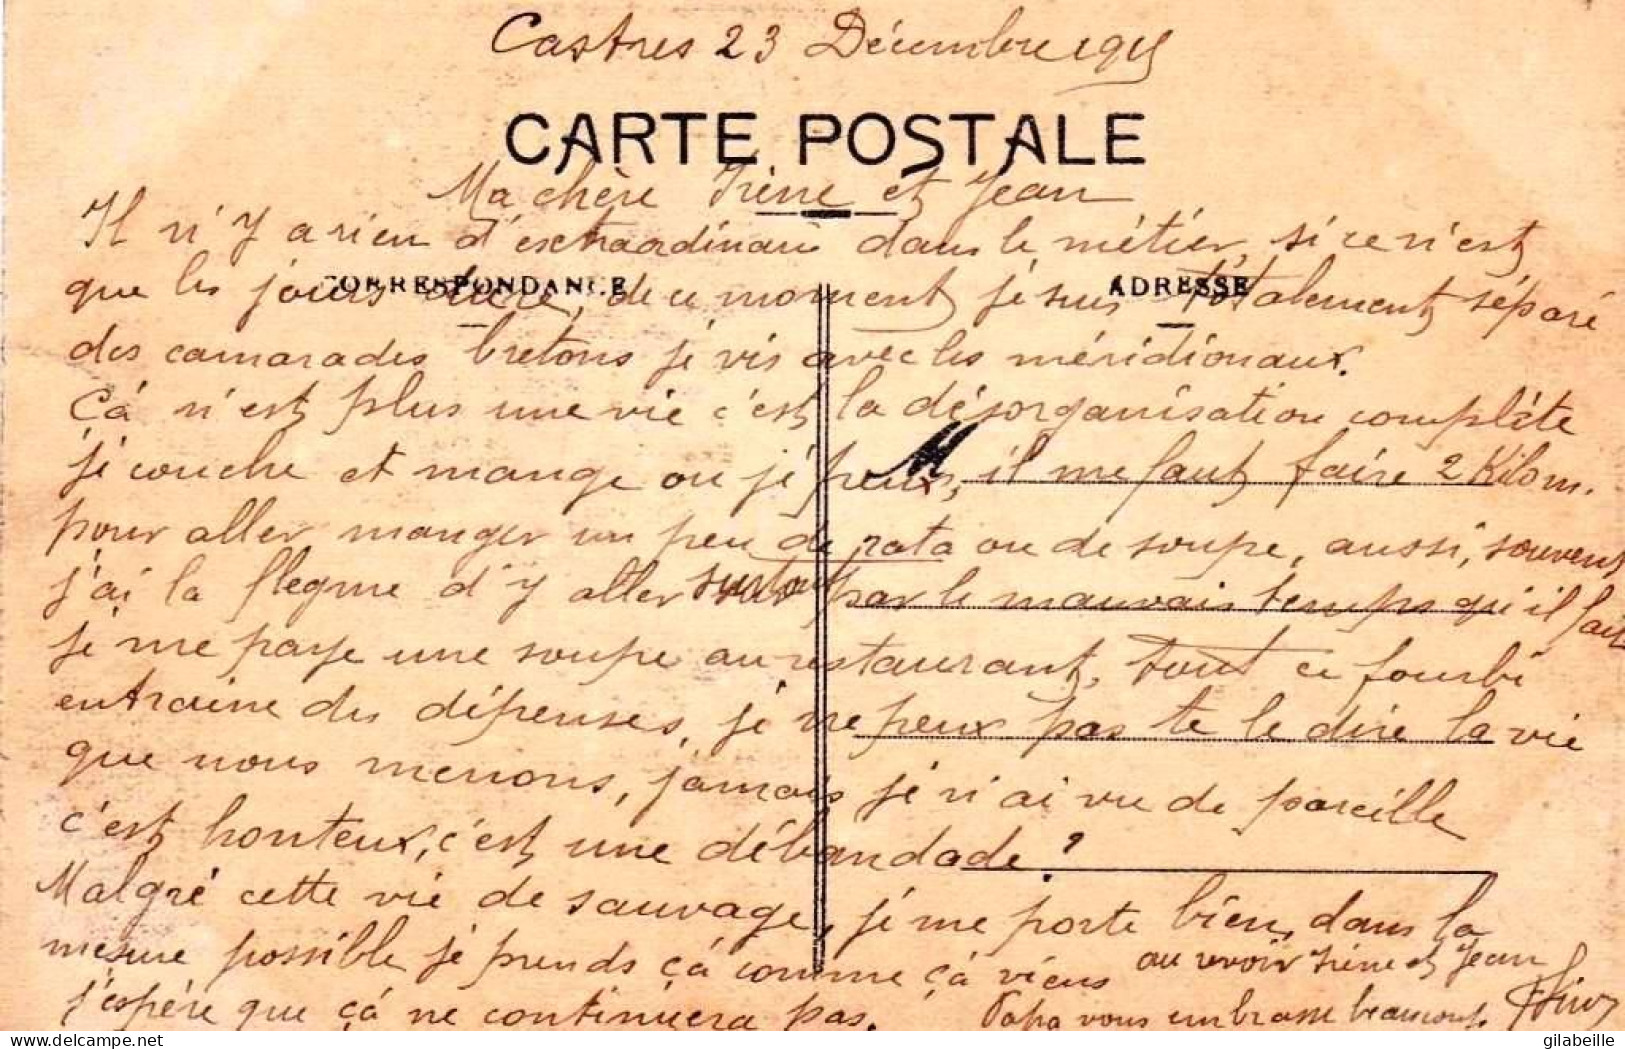 Castres 23 Décembre 1915
CARTE POSTALE
Ma chère Irène et Jean
Il n'y a rien d'extraordinaire dans le métier, si ce n'est
CORRESPONDANCE
ADRESSE
que les jours de ce moment je suis totalement séparé
des camarades bretons je vis avec les méridionaux.
Çá n'est plus une vie c'est la désorganisation complète
M
je couche et mange ou je peux, il me faut faire 2 Kilom.
pour aller manger un peu de rata ou de soupe, aussi, souvent
j'ai la flegme d'y aller surtout par le mauvais temps qu'il fait
je me paye une soupe au restaurant, tout ce fourbi
entraine des dépenses, je ne peux pas te le dire la vie
que nous menons, jamais je n'ai vu de pareille
c'est honteux, c'est une débandade?
Malgré cette vie de sauvage, je me porte bien, dans la
mesure possible je prends çá comme çá viens
j'espère que çá ne continuera pas.
au revoir Irène et Jean
Papa vous embrasse beaucoup.
gilabeille